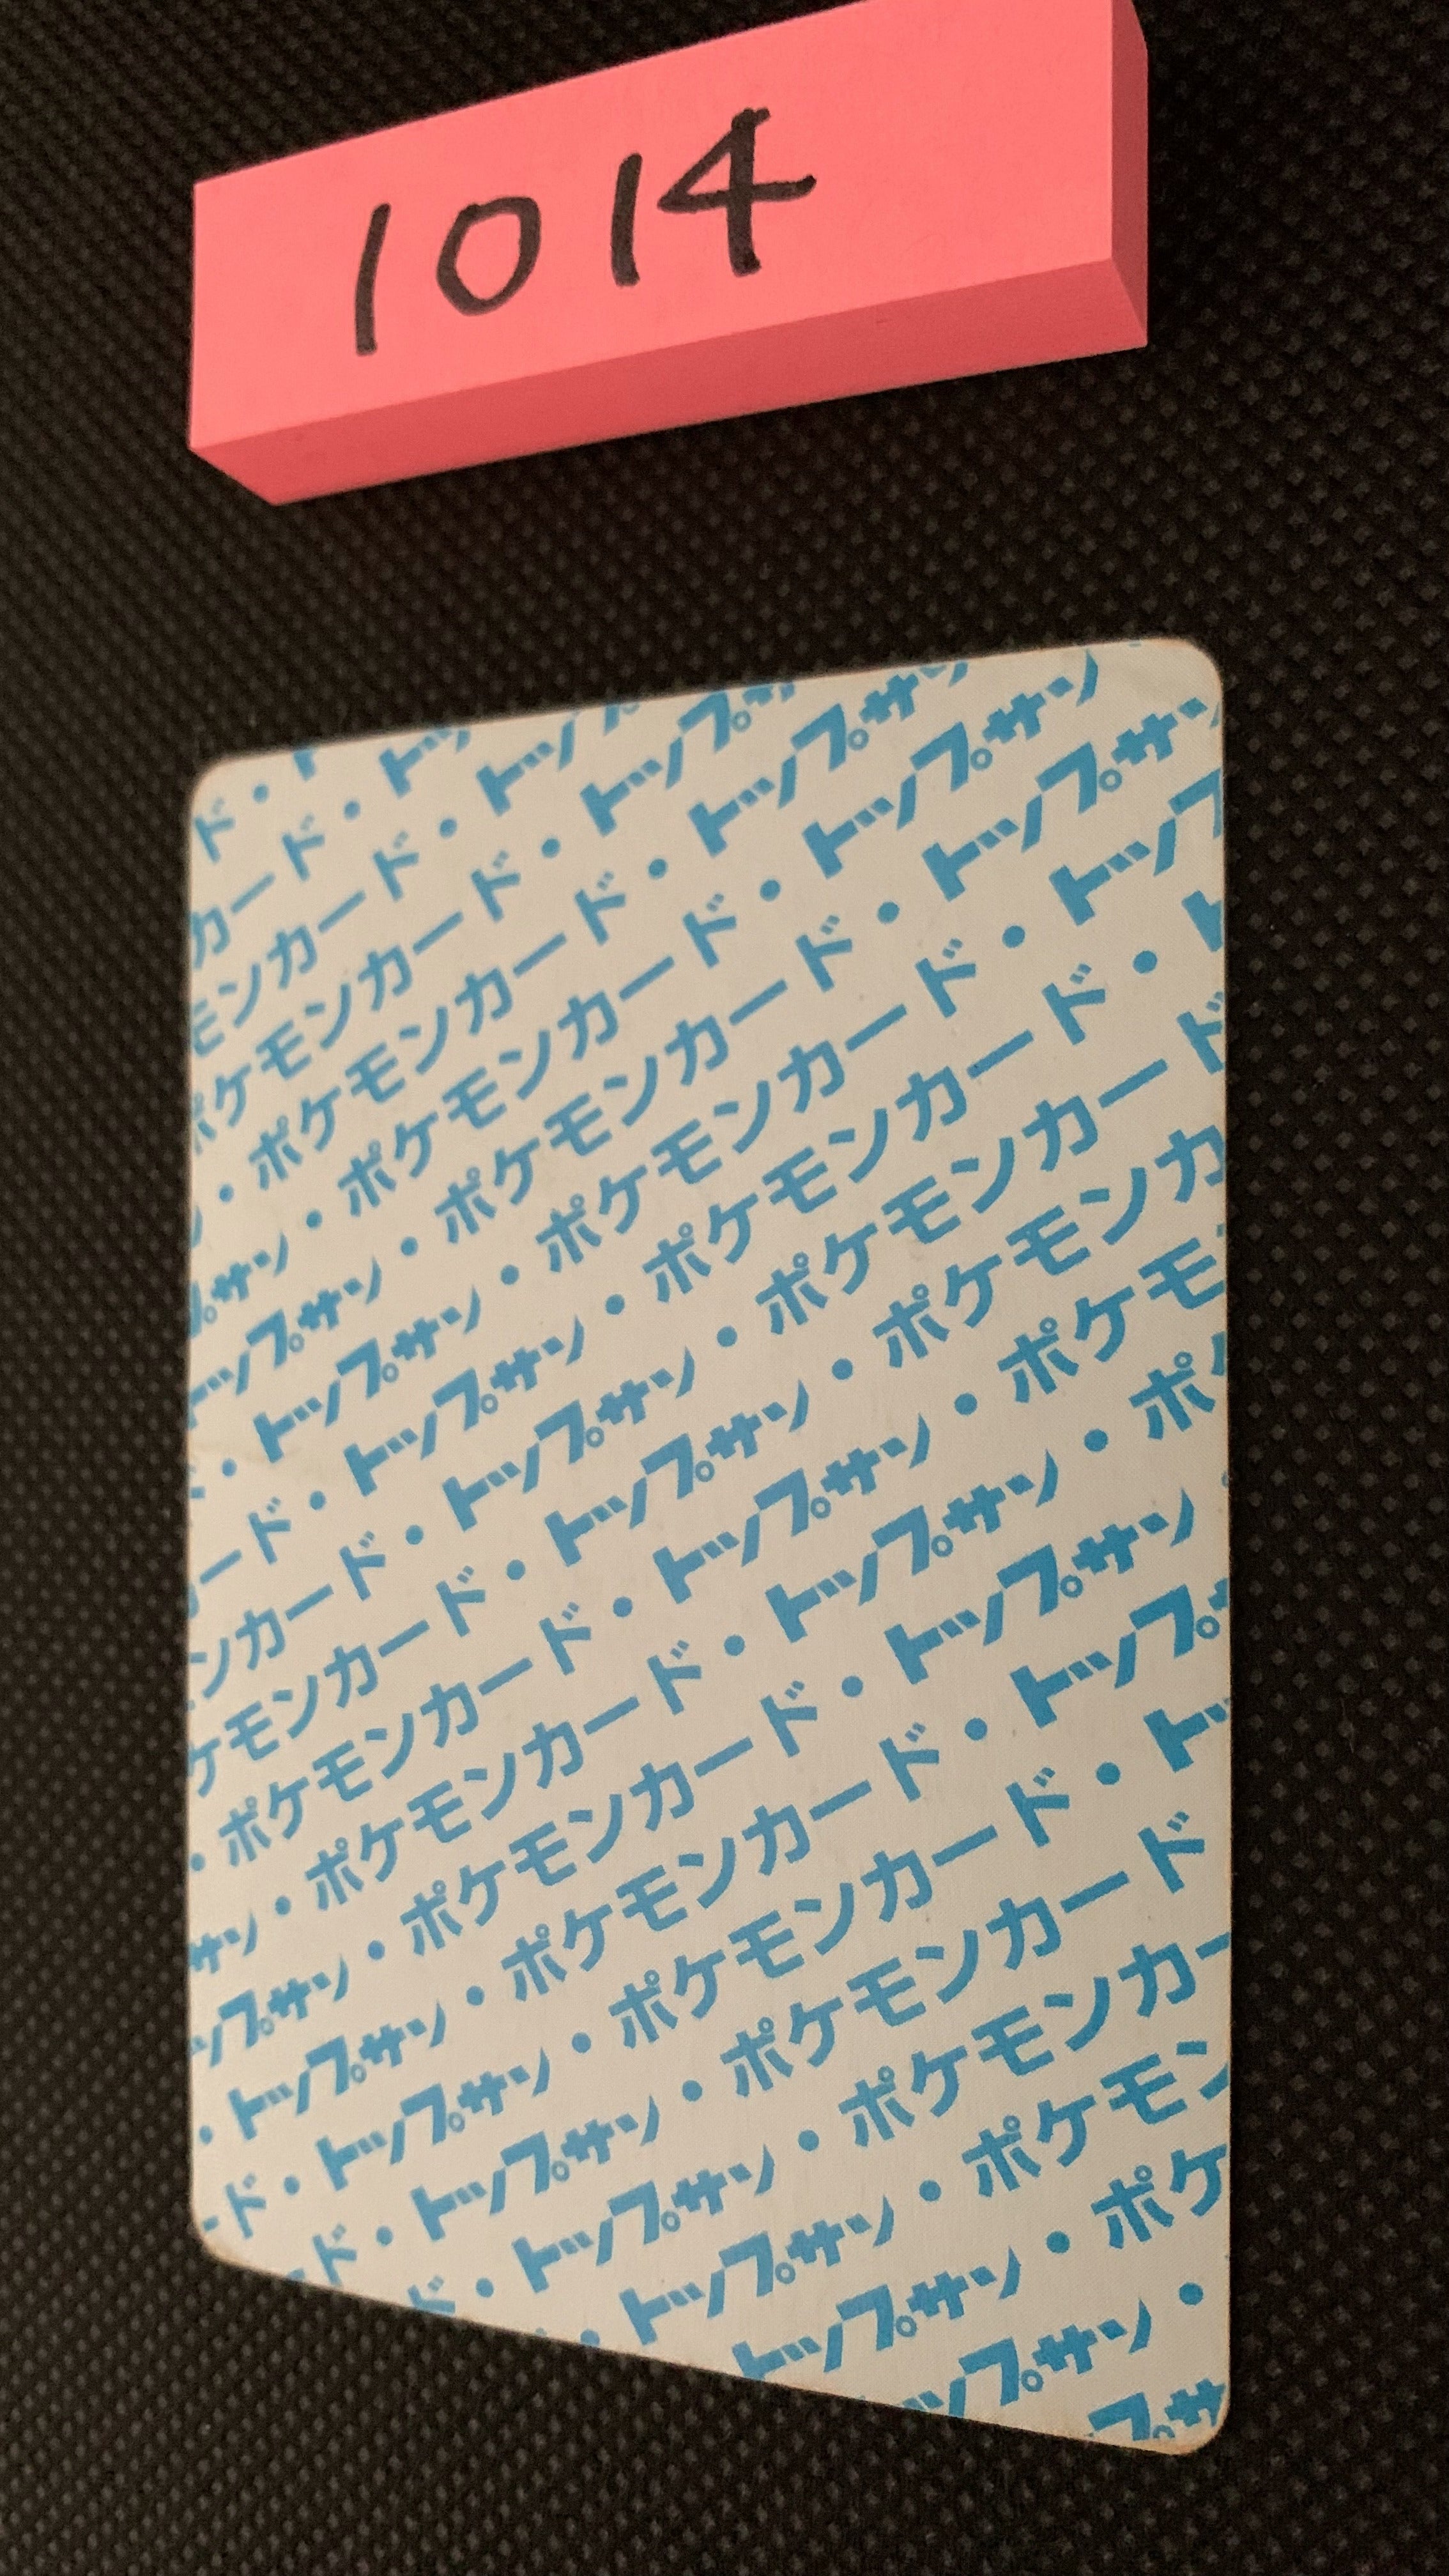 1014
ド・ト
カード・トッ
モンカード・トップ
ポケモンカード・トップサ
・ポケモンカード・トップサン
プサン・ポケモンカード・トップサン
トップサン・ポケモンカード・トップサン
・トップサン・ポケモンカード・トップ
ード・トップサン・ポケモンカード・ト
ンカード・トップサン・ポケモンカード
ケモンカード・トップサン・ポケモンカ
・ポケモンカード・トップサン・ポケモ
サン・ポケモンカード・トップサン・ポ
ップサン・ポケモンカード・トップサン
・トップサン・ポケモンカード・トップ
ド・トップサン・ポケモンカード・トッ
ド・トップサン・ポケモンカード
ド・トップサン・ポケモンカー
・トップサン・ポケモン
トップサン・ポケ
ップサン・
プサ